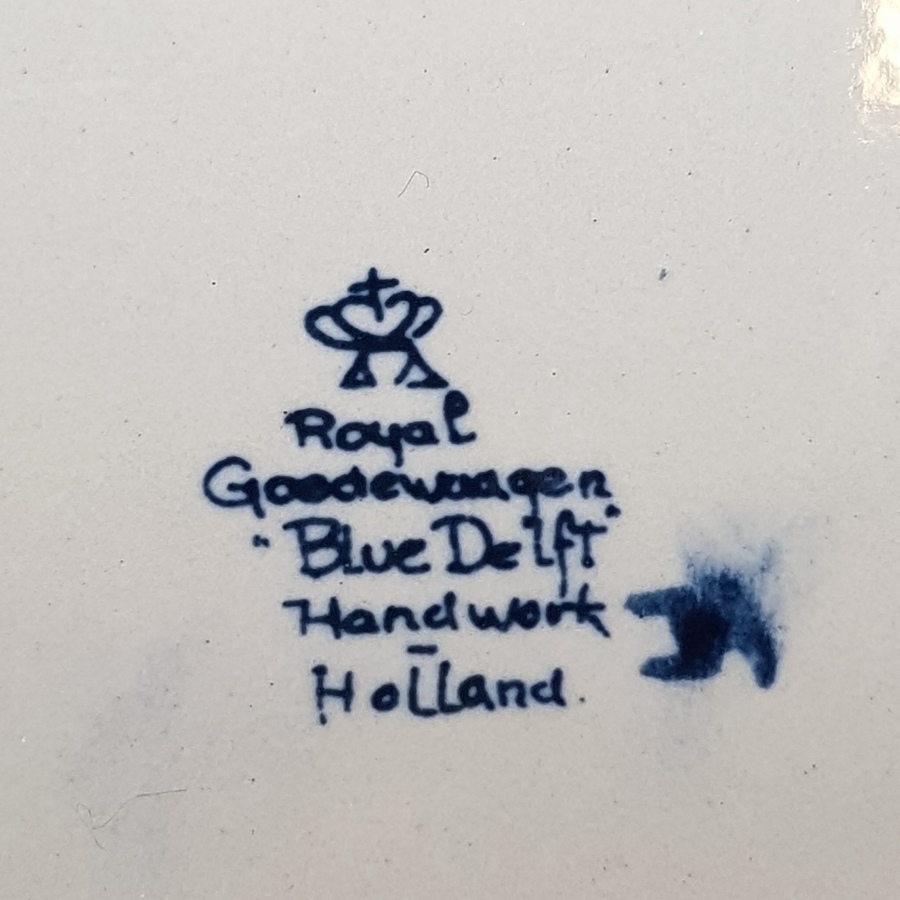 Royal
Goedewaagen
"Blue Delft"
Handwork
Holland.